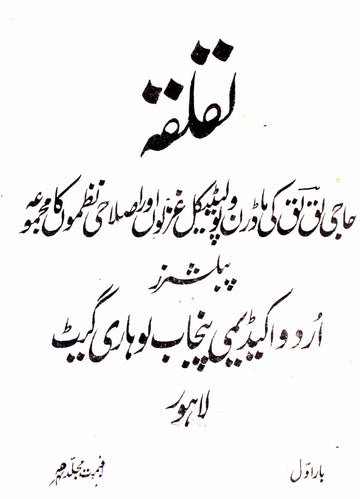 لقلقہ
حاجی لق لق کی ماڈرن و پولیٹیکل غزلوں اور اصلاحی نظموں کا مجموعہ
پبلشرز
اُردو اکیڈیمی پنجاب لوہاری گیٹ
لاہور
بار اوّل
قیمت مجلد